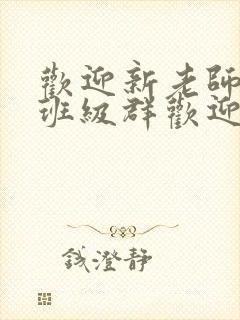 歡迎新老師
班級群歡迎
錢澄靜